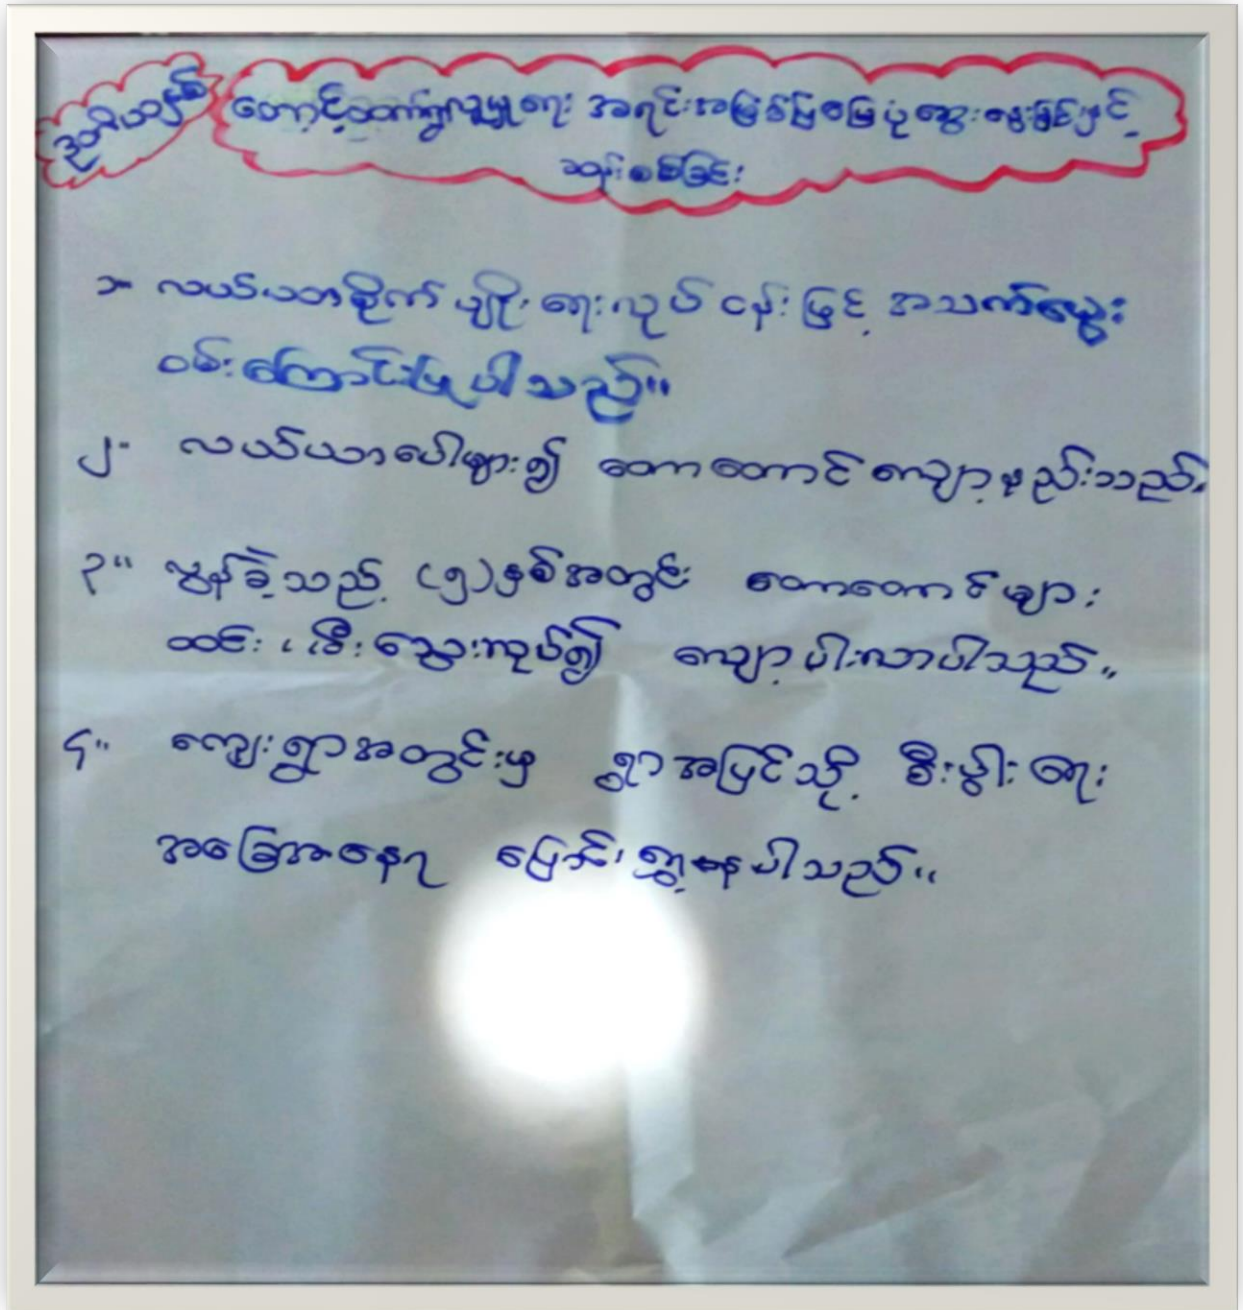 ဒုတိယညှိစ်
တောင့်ထက်ရွာလူမှုရေး အရင်းအမြစ်ပြမြေပုံဆွေးနွေးခြင်းနှင့်
ဆန်းစစ်ခြင်း
၁- လယ်ယာစိုက်ပျိုးရေးလုပ်ငန်းဖြင့် အသက်မွေး
ဝမ်းကြောင်းပြုပါသည်။
၂- လယ်ယာပေါများ၍ တောတောင်လျော့နည်းသည်။
၃။ လွန်ခဲ့သည့် (၅)နှစ်အတွင်း တောတောင်များ
ထင်း၊ မီးသွေးလုပ်၍ လျော့ပါးလာပါသည်။
၄။ ကျေးရွာအတွင်းမှ ရွာအပြင်သို့ စီးပွါးရေး
အခြေအနေ၎ ပြောင်းရွှေ့နေပါသည်။